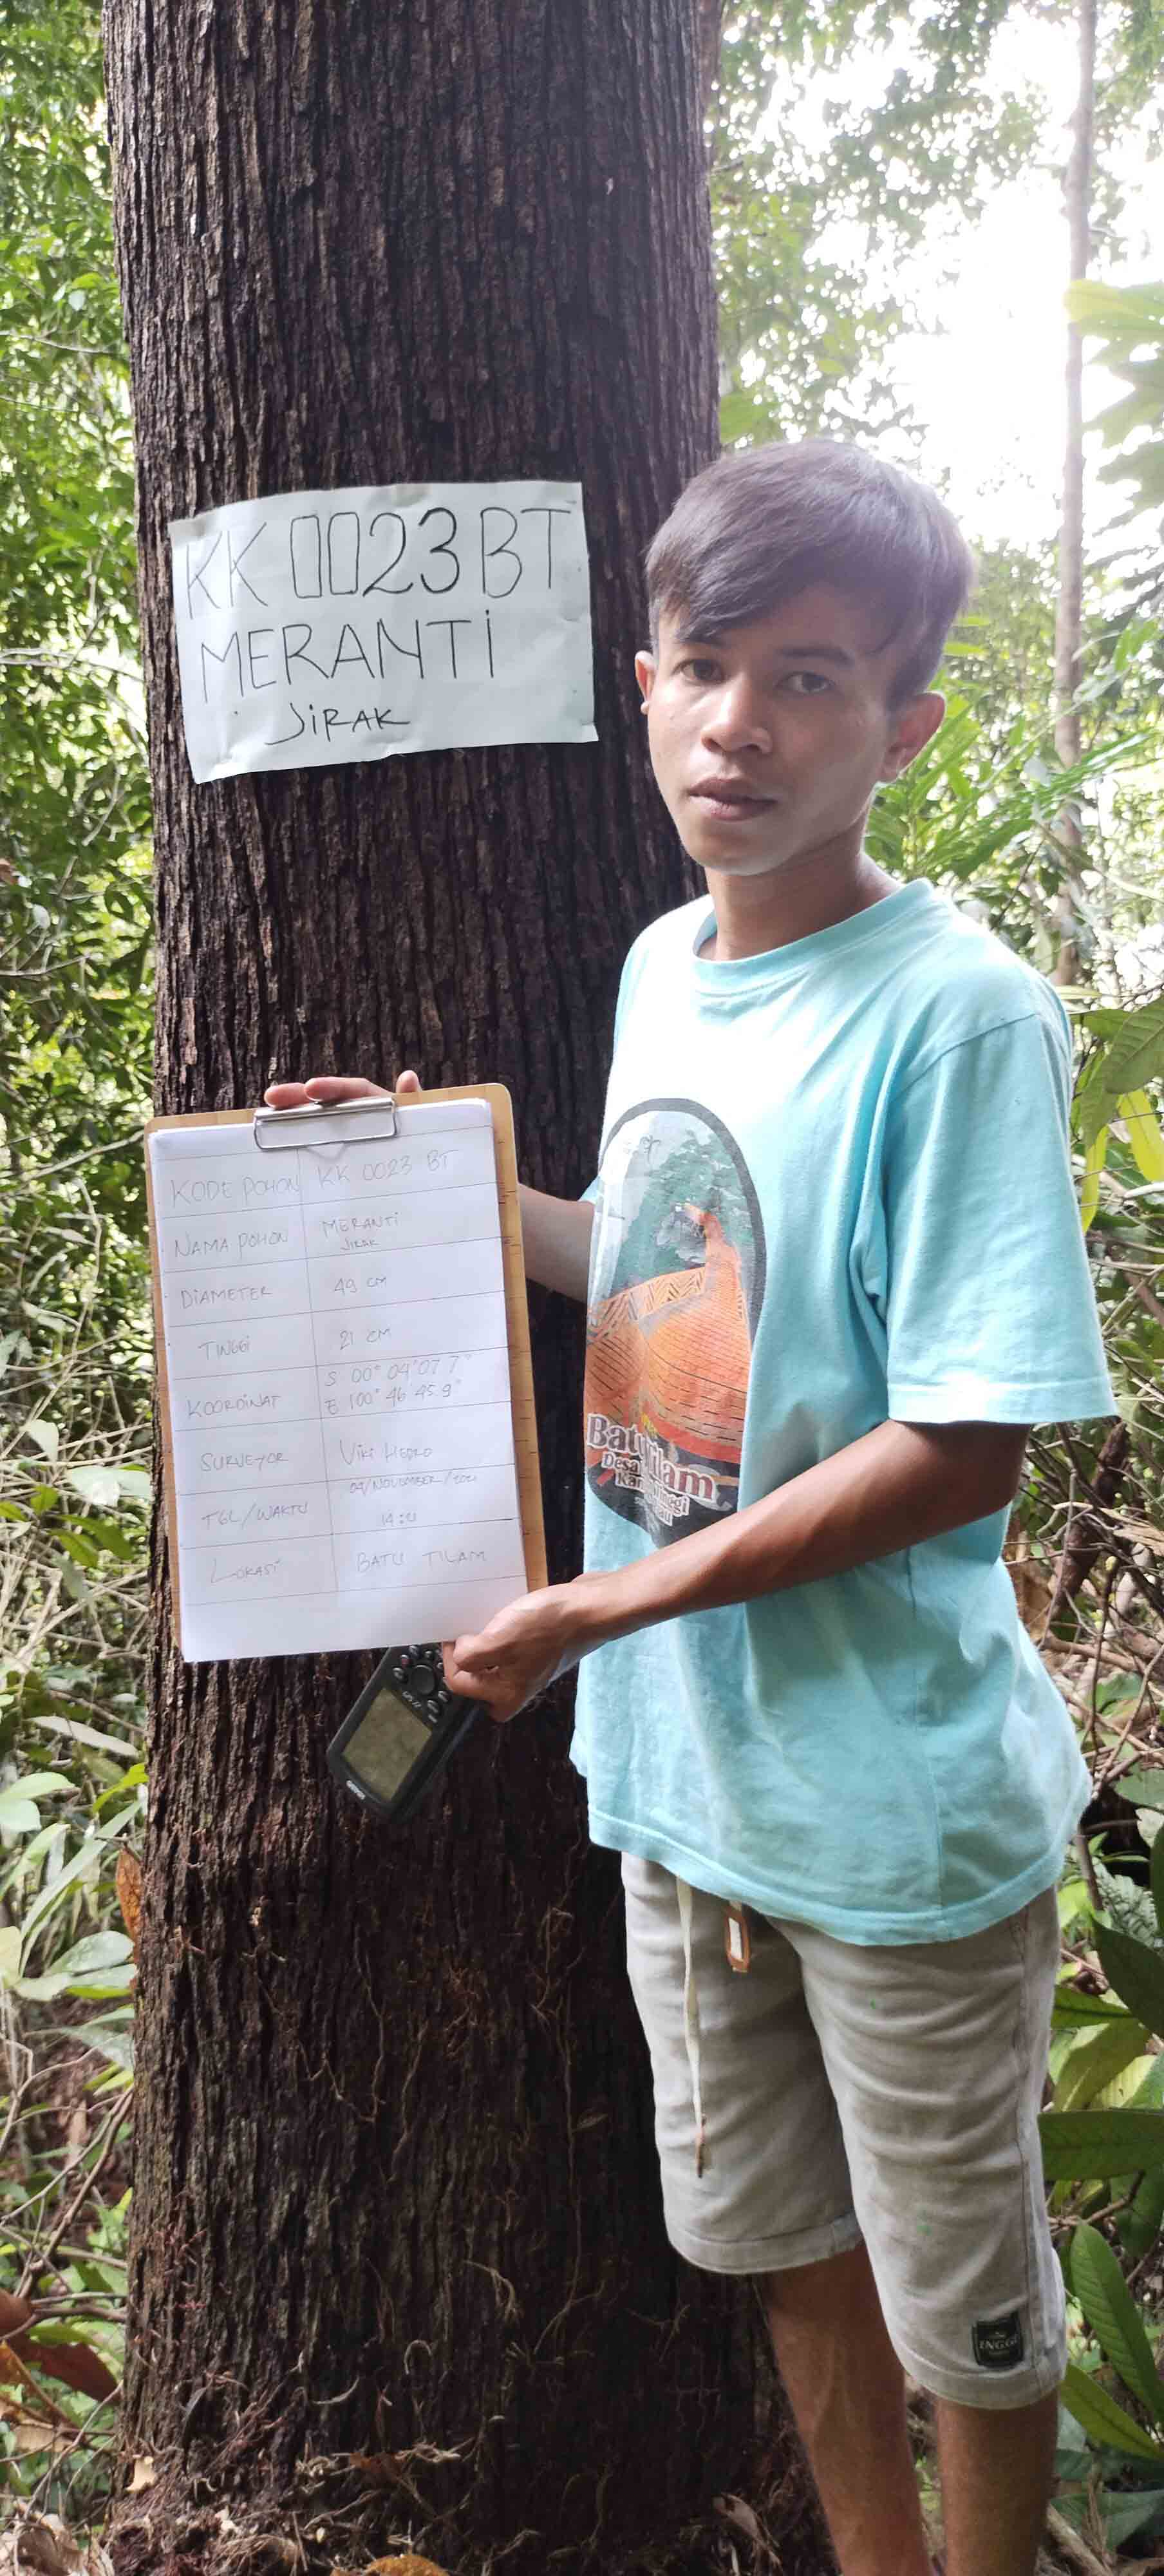 KK 0023 BT
MERANTI
JIRAK
KODE POHON KK 0023 BT
NAMA POHON MERANTI
JIRAK
DIAMETER 49 CM
TINGGI 21 CM
KOORDINAT S 00° 04' 07.7"
E 100° 46' 45.9"
SURVEYOR VIKI HENDRO
TGL/WAKTU 04/NOVEMBER/2021
14:21
LOKASI BATU TILAM
Batu Tilam
Desa
GARMIN